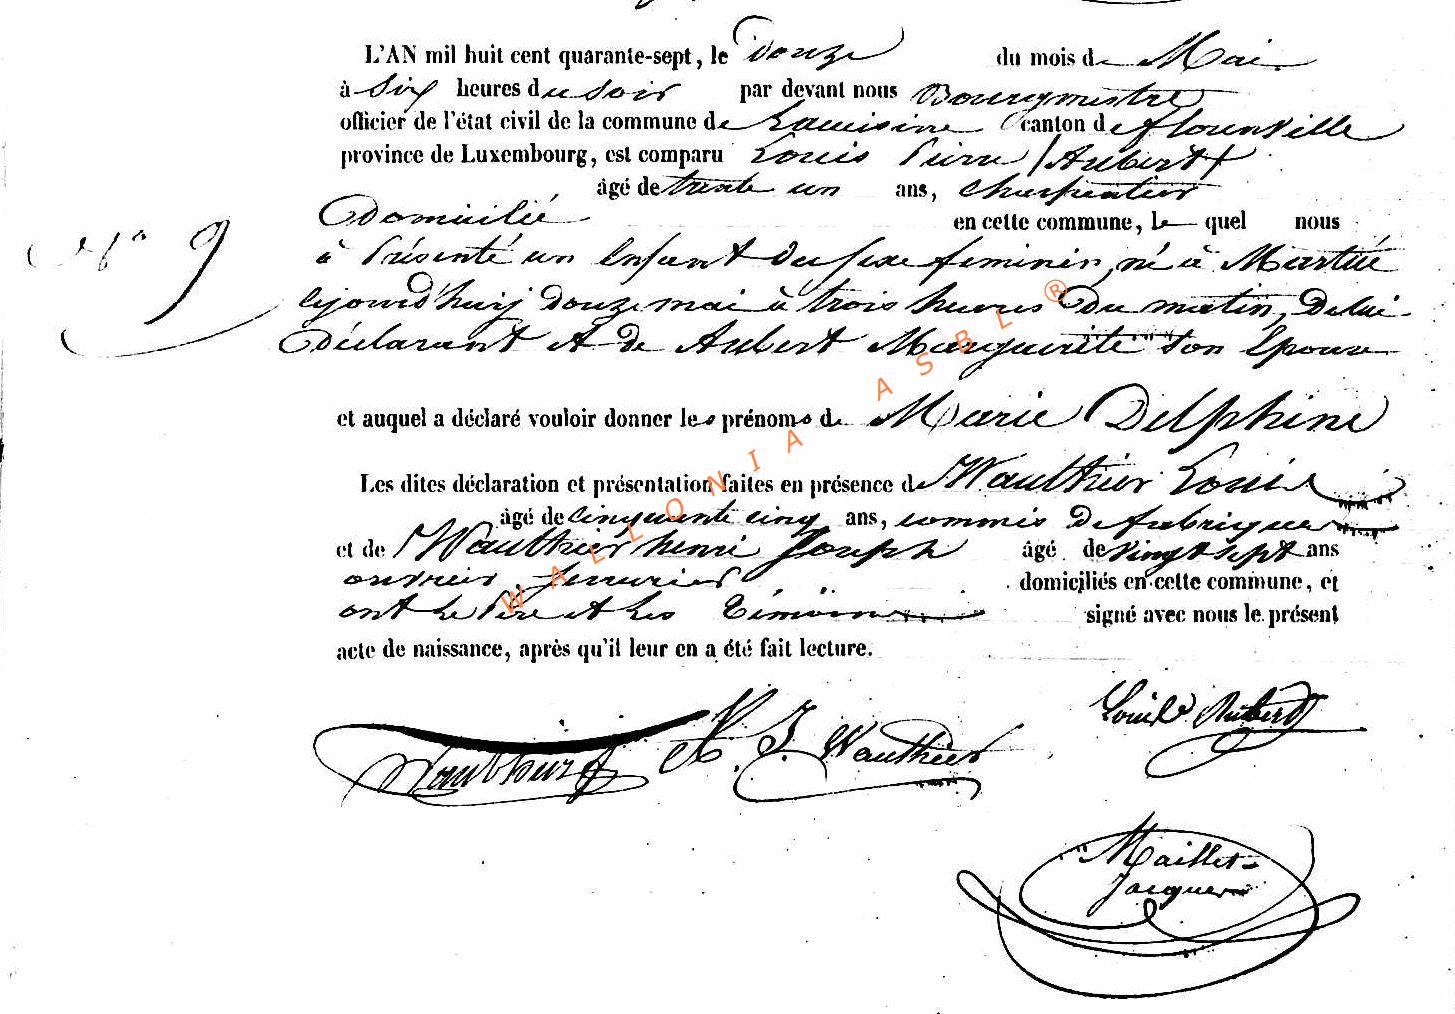 L'AN mil huit cent quarante-sept, le douze du mois de Mai
à Six heures du Soir par devant nous Bourgmestre
officier de l'état civil de la commune de Lacuisine canton de florenville
province de Luxembourg, est comparu Louis Pierre Aubert
âgé de trente un ans, charpentier
Domicilié en cette commune, le quel nous
N° 9
à Présenté un Enfant du sexe feminin, né à Martué
cejourd'huij douze mai à trois heures Du matin, De lui
Déclarant Et de Aubert Marguerite Son Epouse
et auquel a déclaré vouloir donner les prénoms de Marie Delphine
Les dites déclaration et présentation faites en présence de Wauthier Louis
âgé de cinquante cinq ans, commis De fabrique
et de Wauthier henri Joseph âgé de vingt sept ans
ouvrier serrurier domiciliés en cette commune, et
ont le Père et les Témoins signé avec nous le présent
acte de naissance, après qu'il leur en a été fait lecture.
Wauthier H. J. Wauthier Louis Aubert
Maillet
Jacques
WALLONIA ASBL ®